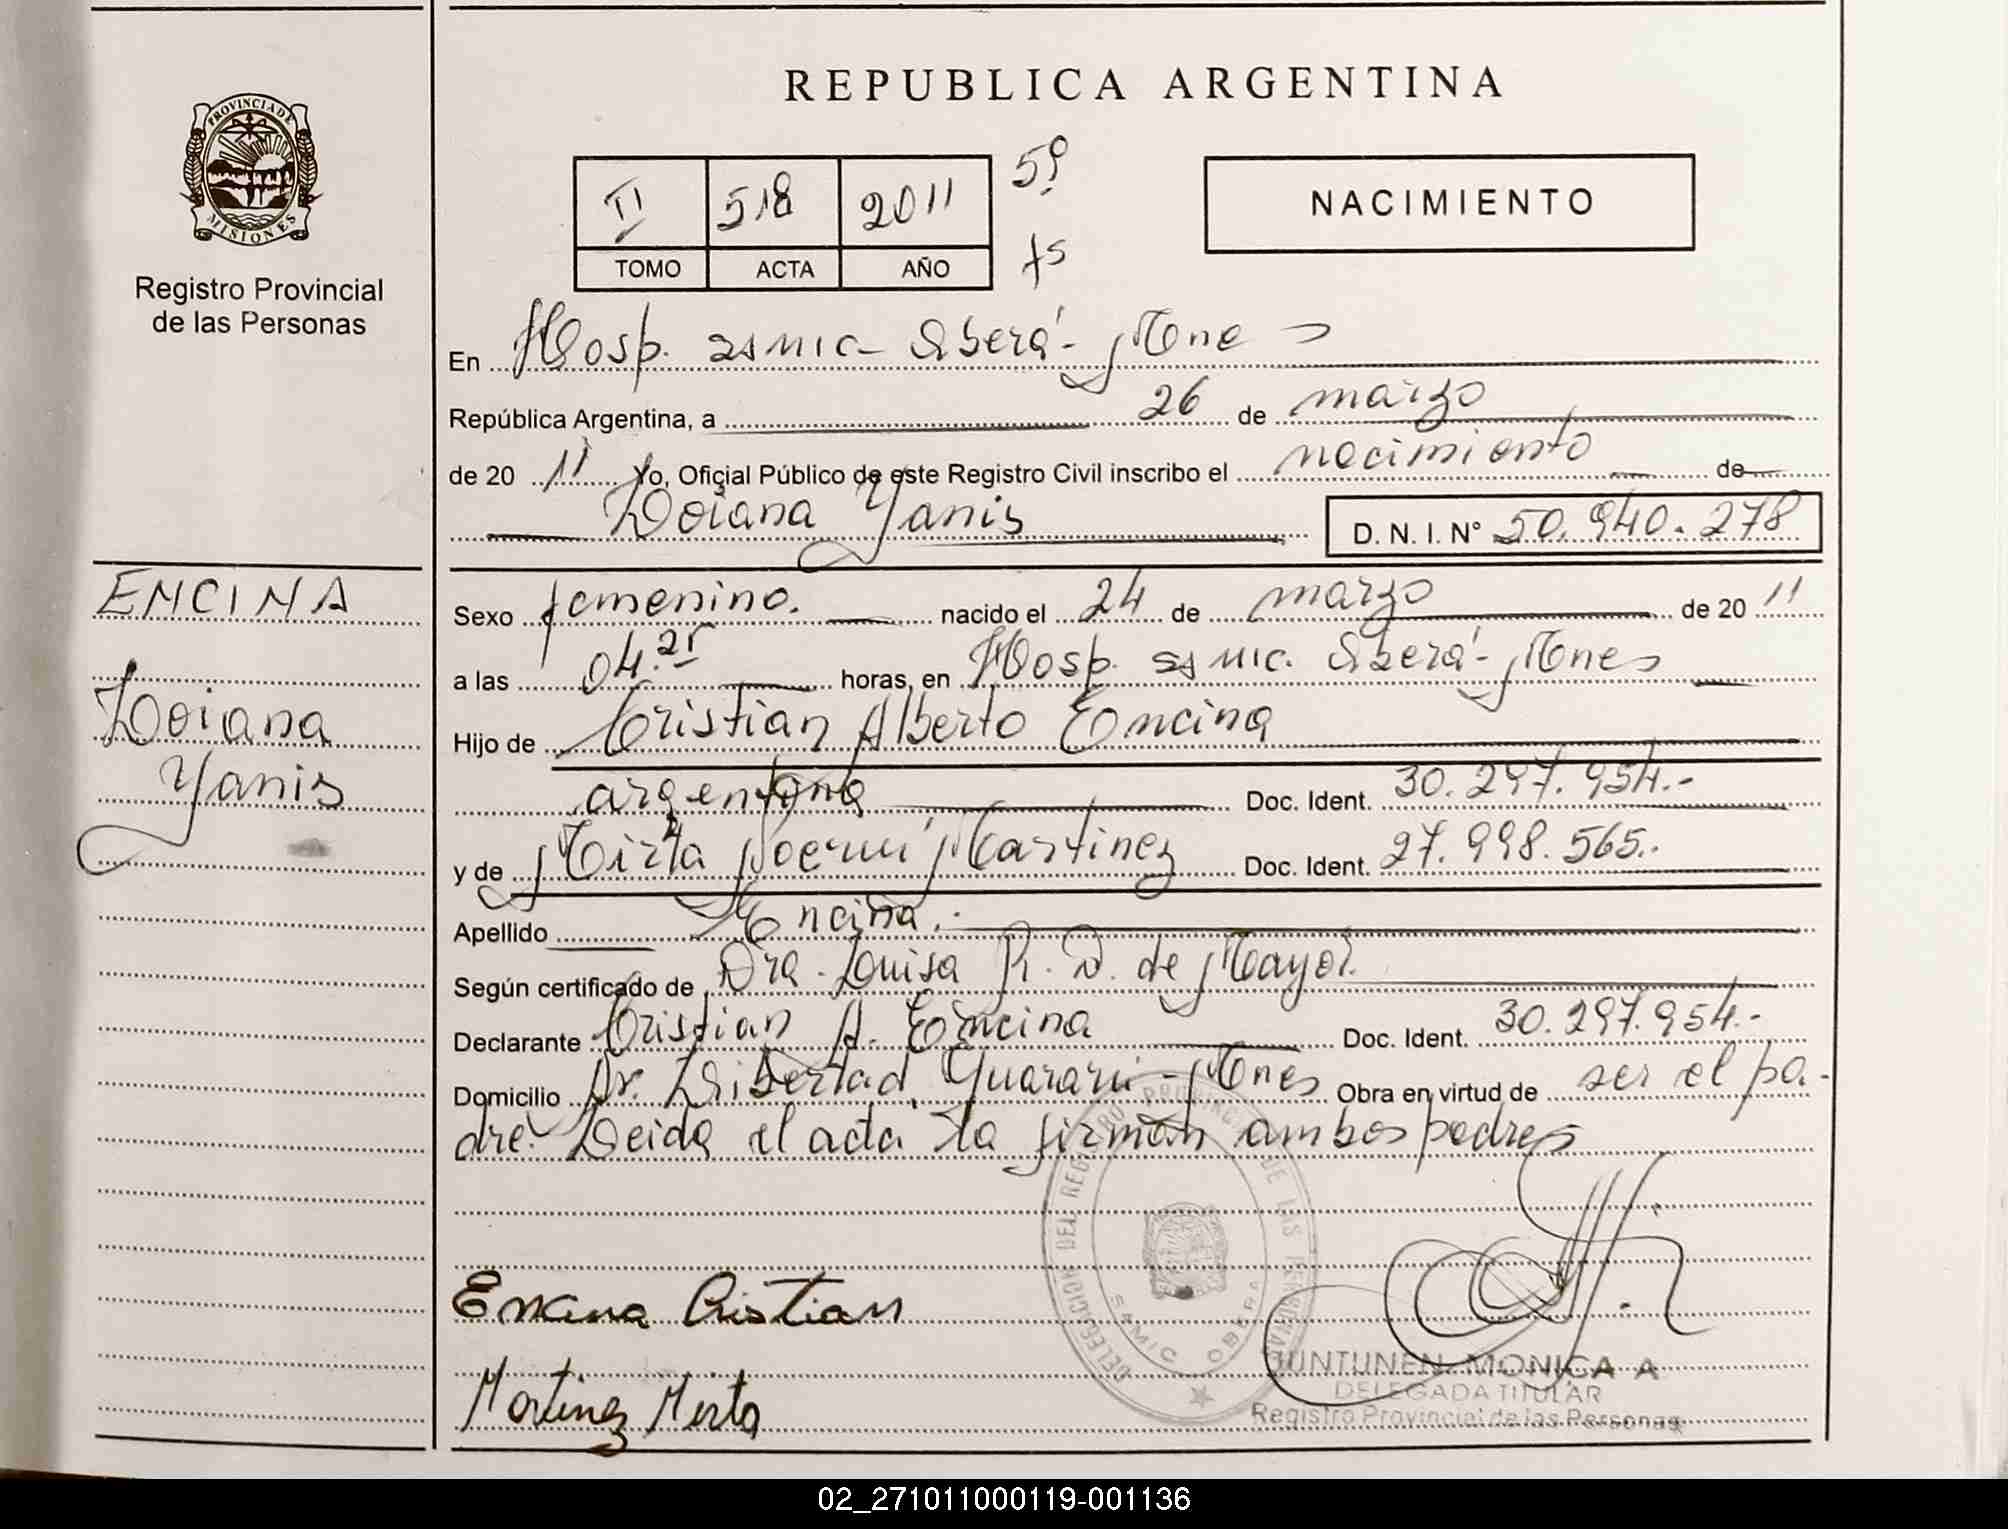 REPUBLICA ARGENTINA
PROVINCIA DE
MISIONES
Registro Provincial
de las Personas
II 518 2011 5º
TOMO ACTA AÑO
NACIMIENTO
En Hosp. SAMIC - Oberá - Mnes
República Argentina, a 26 de marzo
de 20 11 Yo, Oficial Público de este Registro Civil inscribo el nacimiento de
Loiana Yanis D. N. I. N° 50.940.278
ENCINA
Loiana
Yanis
Sexo femenino. nacido el 24 de marzo de 20 11
a las 04.25 horas, en Hosp. SAMIC. Oberá - Mnes
Hijo de Cristian Alberto Encina
Doc. Ident. 30.297.954.-
y de Mirta Noemí Martinez Doc. Ident. 27.998.565.-
Apellido Encina.
Según certificado de Dra. Luisa R. D. de Mayol.
Declarante Cristian A. Encina Doc. Ident. 30.297.954.-
Domicilio Av. Libertad, Guaraní - Mnes Obra en virtud de ser el pa-
dre. Leida el acta la firman ambos padres
DELEGACION DEL REGISTRO PROVINCIAL DE LAS PERSONAS
SAMIC OBERA
Encina Cristian
Martinez Mirta
JUNTUNEN MONICA A
DELEGADA TITULAR
Registro Provincial de las Personas
02_271011000119-001136